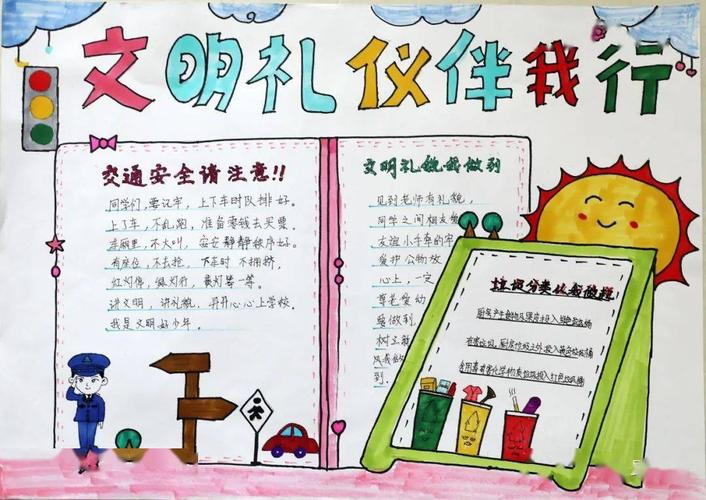 文明礼仪伴我行
交通安全请注意!!
同学们,要记牢,上下车时队排好。
上了车,不乱跑,准备零钱去买票。
车厢里,不大叫,安安静静秩序好。
有座位,不去抢,下车时不拥挤。
红灯停,绿灯行,黄灯等一等。
讲文明,讲礼貌,开开心心上学校。
我是文明好少年。
文明礼貌我做到
见到老师有礼貌,
同学之间相友
友谊小手牵的牢
爱护公物放
心上,一定
尊老爱幼
要做到。
树立新
风我做
到.
垃圾分类从我做起
投入绿色垃圾桶
投入黄色垃圾桶
有害化学物质垃圾投入红色垃圾桶